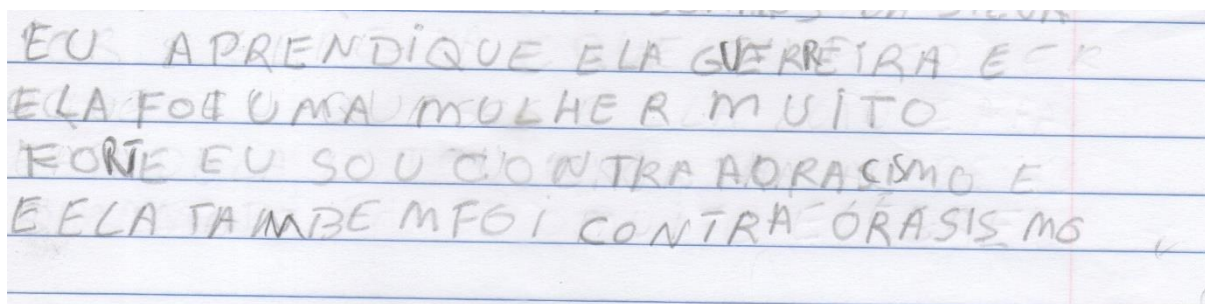 EU APRENDIQUE ELA GUERREIRA E
ELA FOE UMA MULHER MUITO
FORTE EU SOU CONTRA AORACISMO E
E ELA TAMBEM FOI CONTRA ORASISMO